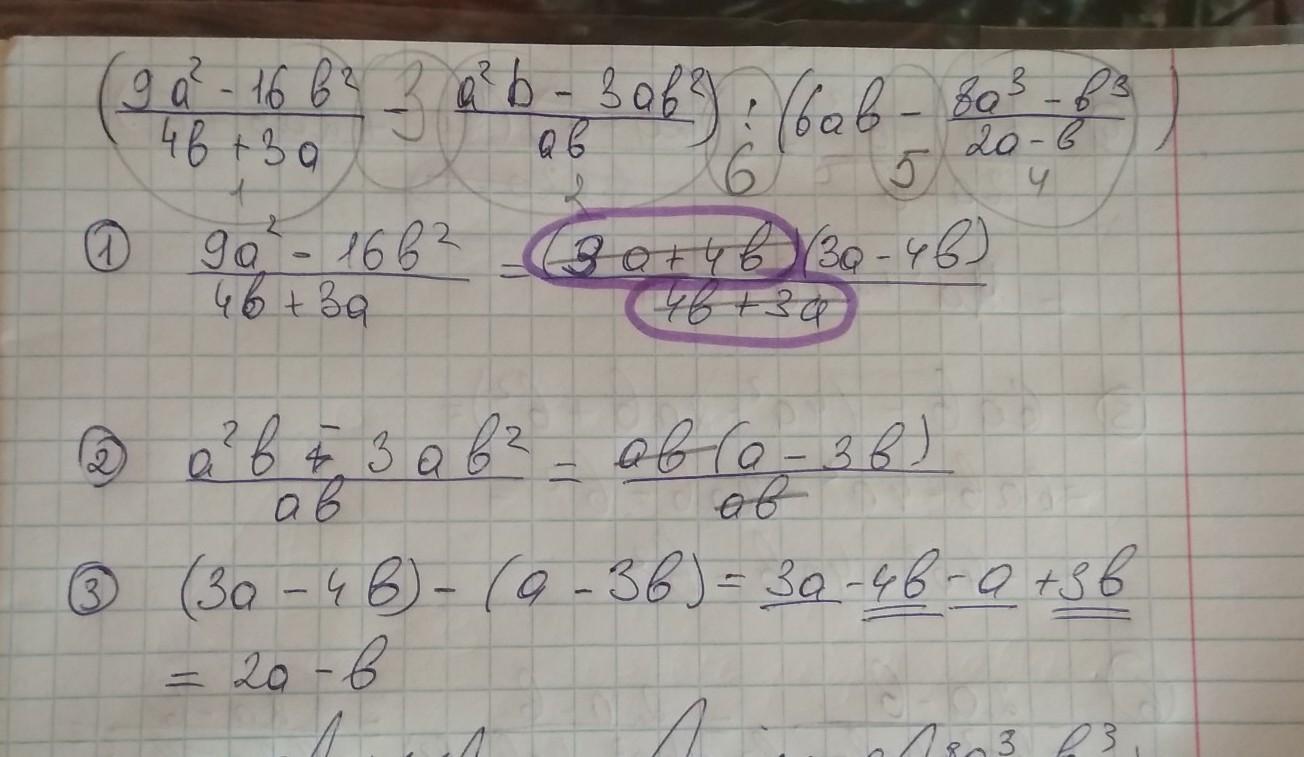 (9a² - 16b² / 4b + 3a - a²b - 3ab² / ab) : (6ab - 8a³ - b³ / 2a - b)
1 3 2 6 5 4
① 9a² - 16b² / 4b + 3a = (3a + 4b)(3a - 4b) / 4b + 3a
② a²b - 3ab² / ab = ab(a - 3b) / ab
③ (3a - 4b) - (a - 3b) = 3a - 4b - a + 3b
= 2a - b